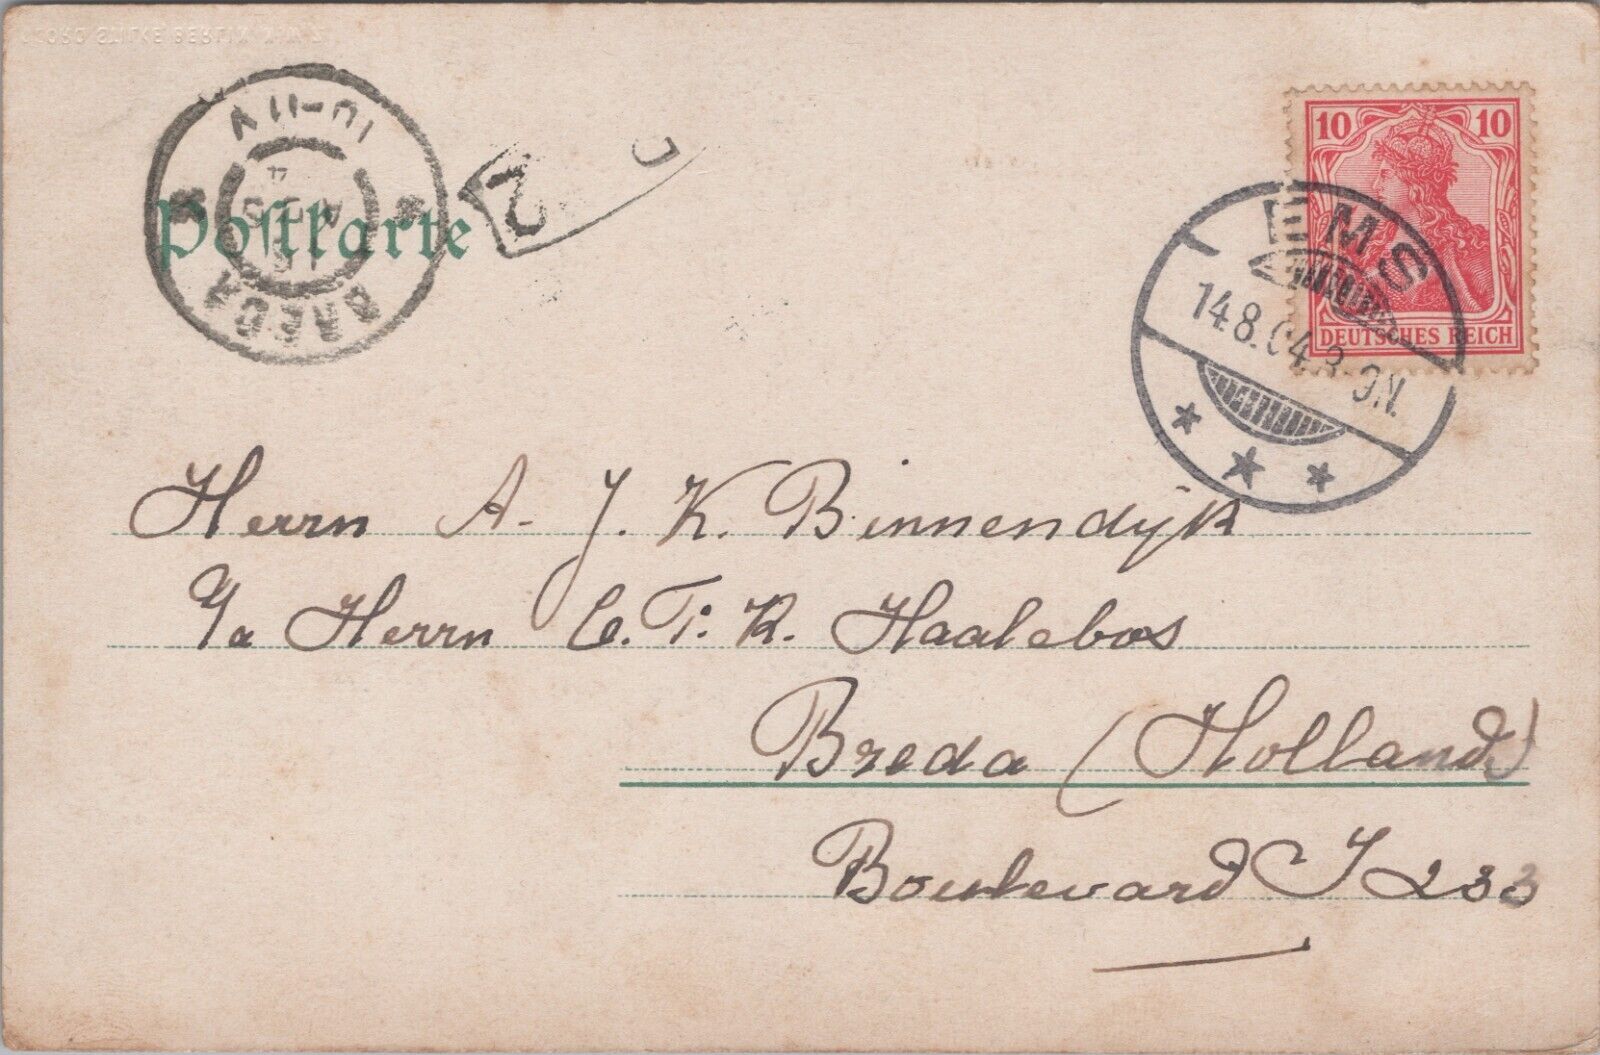 GEORG STILKE BERLIN N.W.7.
Postkarte
BREDA
10-11V
4
2
10 10
DEUTSCHES REICH
EMS
14.8.04.8-9N.
Herrn A. J. K. Binnendijk
p/a Herrn C. T. K. Haalebos
Breda (Holland)
Boulevard I 233